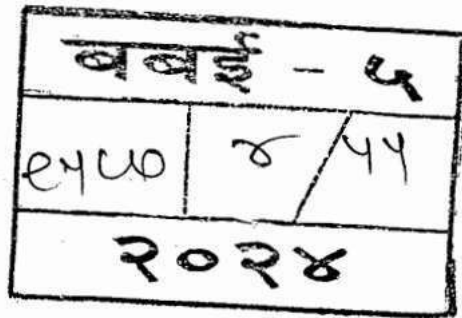 बबई - ५
१५८७ ४/५५
२०२४